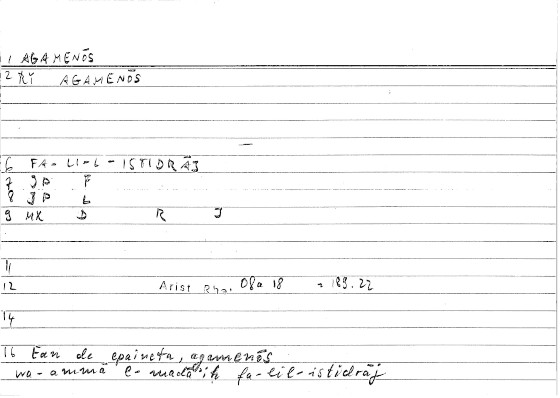 1 AGAMENŌS
2 KI AGAMENŌS
6 FA-LI-L-ISTIDRĀJ
7 JP F
8 JP L
9 MK D R J
11
12 Arist Rhe. 08a 18 = 189.22
14
16 Ean de epaineta, agamenōs
wa-ammā l-madā'iḥ fa-lil-istidrāj